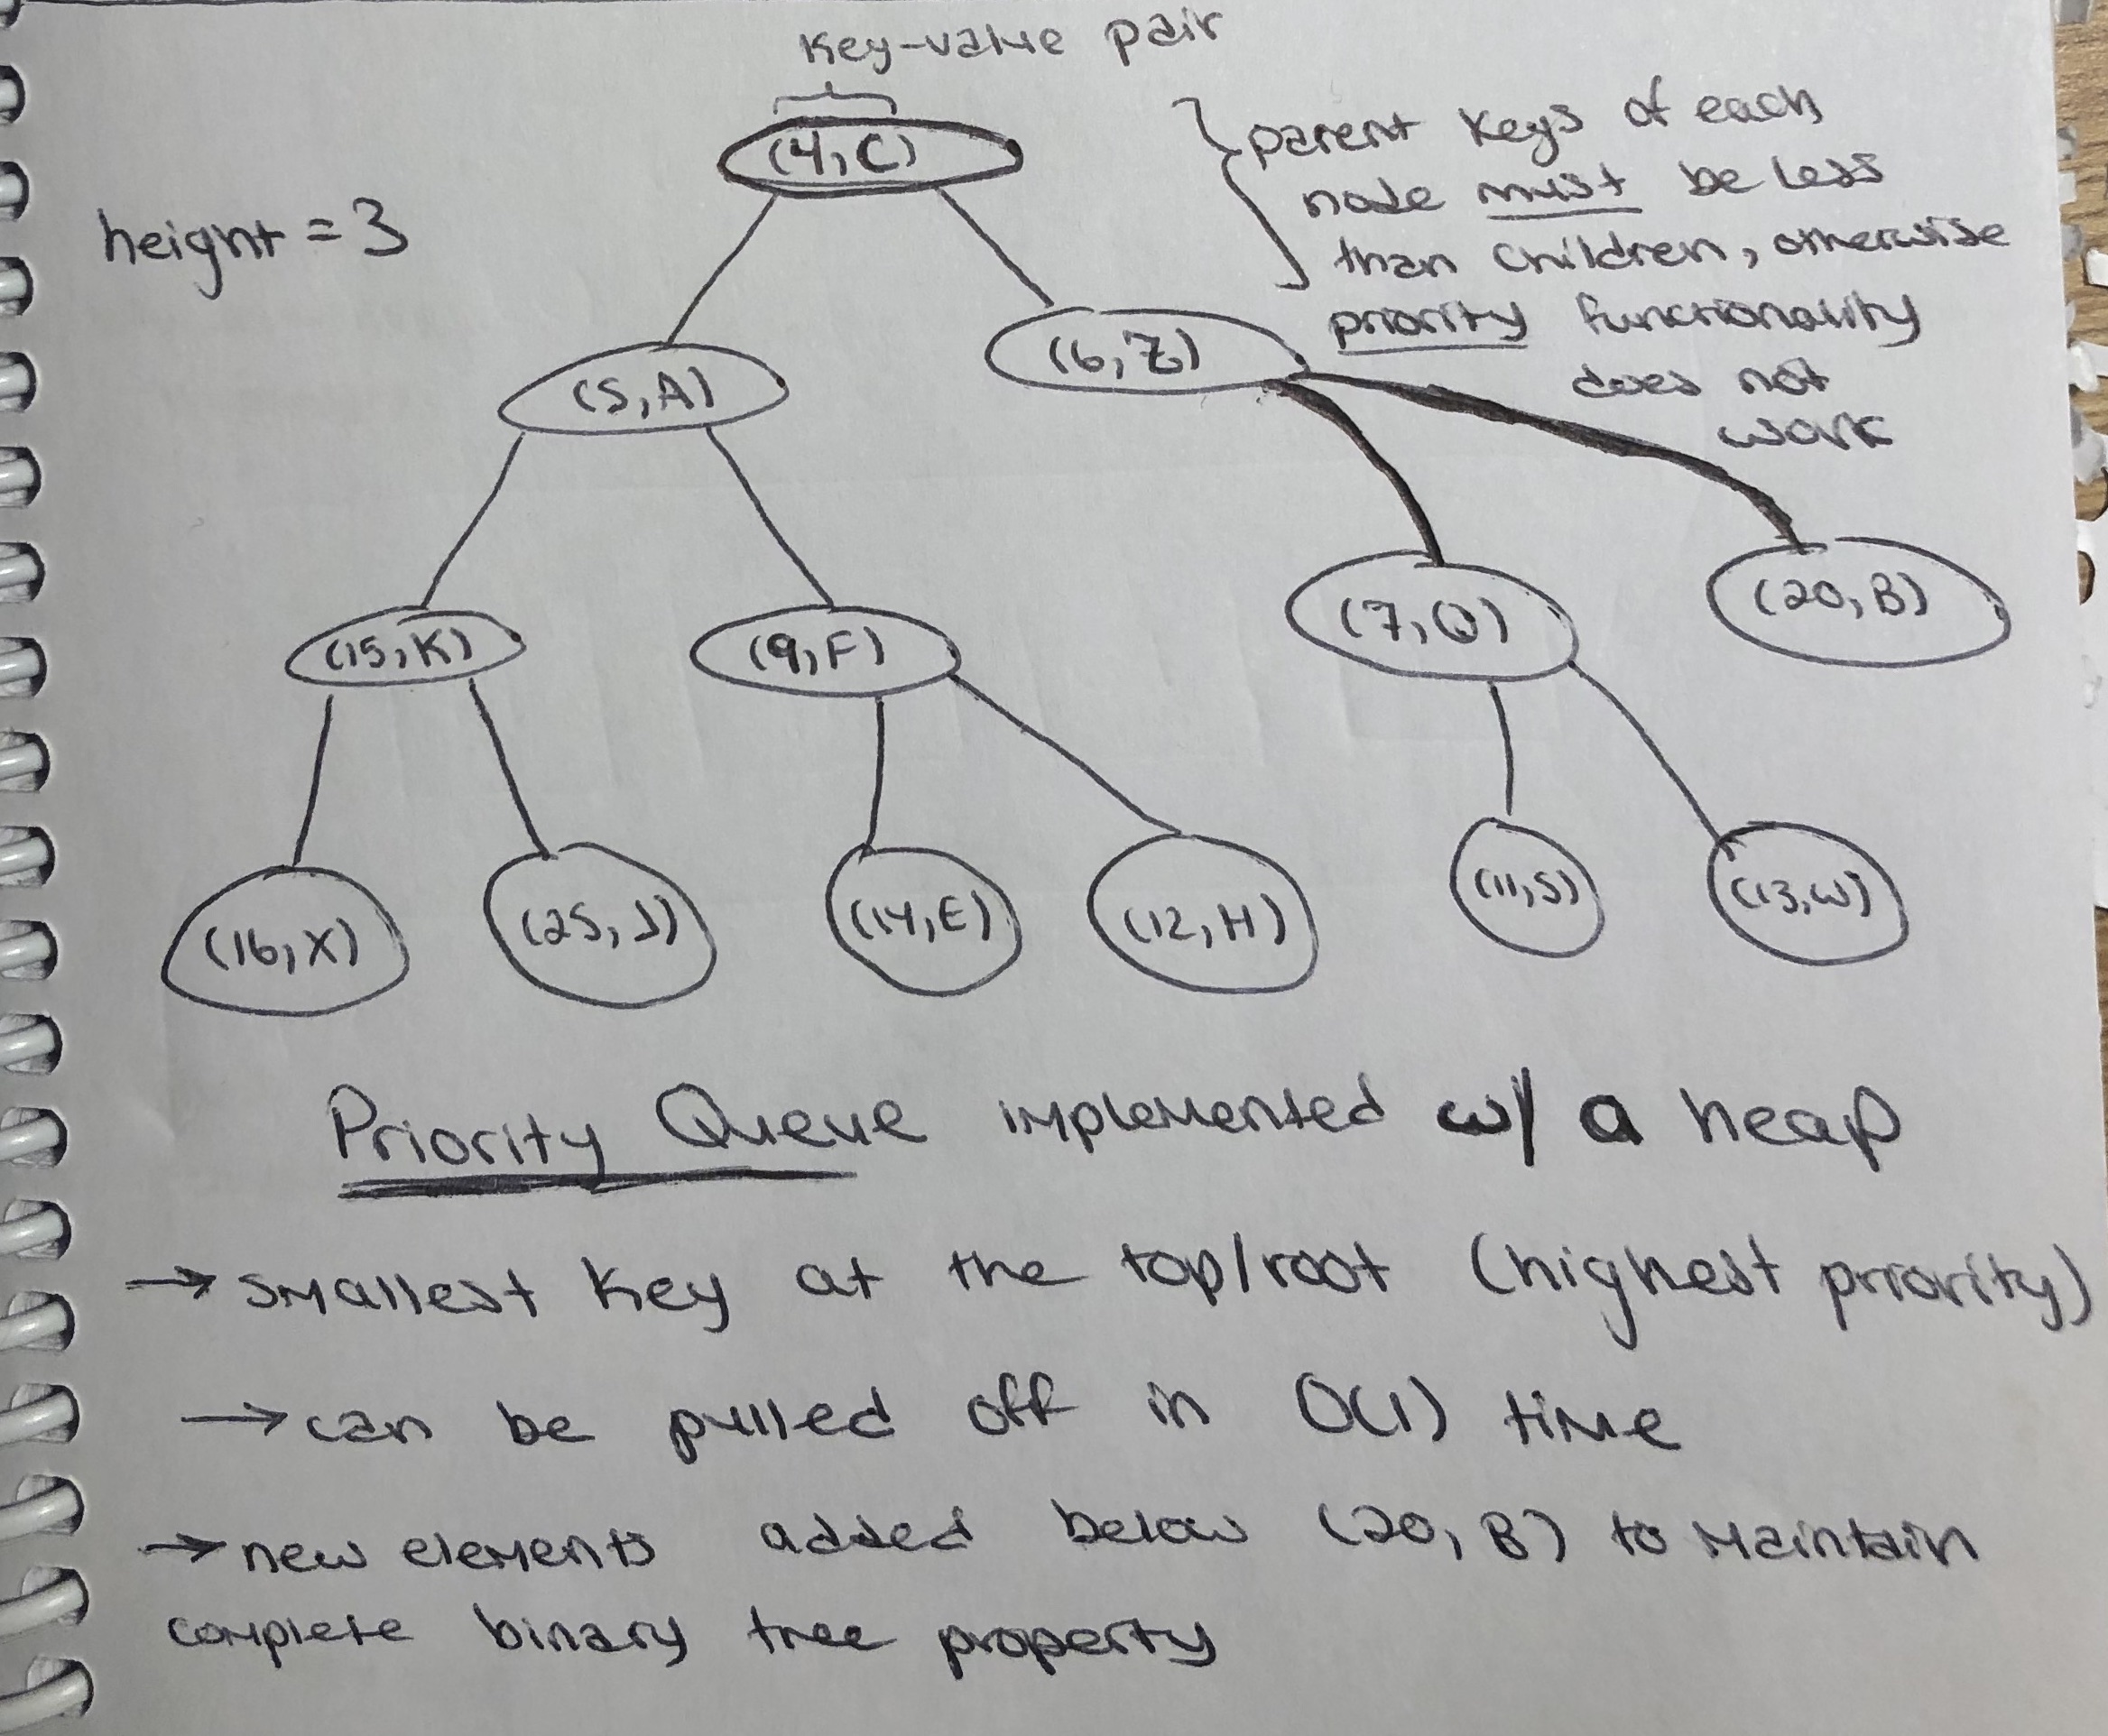 key-value pair
(4,C)
} parent keys of each
node must be less
than children, otherwise
priority functionality
does not
work
height = 3
(5,A)
(6,Z)
(15,K)
(9,F)
(7,Q)
(20,B)
(16,X)
(25,J)
(14,E)
(12,H)
(11,S)
(13,W)
Priority Queue implemented w/ a heap
→ smallest key at the top/root (highest priority)
→ can be pulled off in O(1) time
→ new elements added below (20, B) to maintain
complete binary tree property